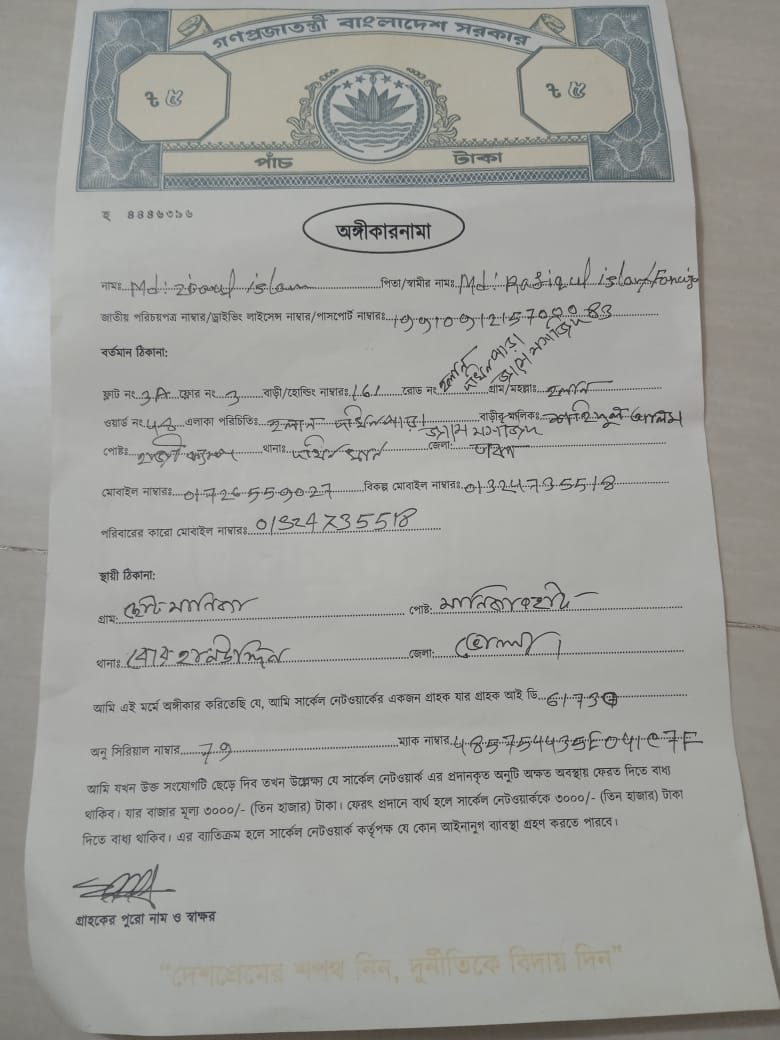 গণপ্রজাতন্ত্রী বাংলাদেশ সরকার
৳ ৫ ৳ ৫
পাঁচ টাকা
হ ৪৪৪৬৩১৬
অঙ্গীকারনামা
নামঃ Md: islam পিতা/স্বামীর নামঃ Md: Rafiqul islam/
জাতীয় পরিচয়পত্র নাম্বার/ড্রাইভিং লাইসেন্স নাম্বার/পাসপোর্ট নাম্বারঃ
বর্তমান ঠিকানা:
ফ্লাট নং 3A ফ্লোর নং 3 বাড়ী/হোল্ডিং নাম্বারঃ 161 রোড নং গ্রাম/মহল্লাঃ
ওয়ার্ড নং 48 এলাকা পরিচিতিঃ জামে মসজিদ বাড়ীর মালিকঃ
পোষ্টঃ থানাঃ জেলাঃ ঢাকা
মোবাইল নাম্বারঃ 01726559027 বিকল্প মোবাইল নাম্বারঃ 01324735518
পরিবারের কারো মোবাইল নাম্বারঃ 01324735518
স্থায়ী ঠিকানা:
গ্রাম: ছোট মানিকা পোষ্ট: মানিকার হাট
থানাঃ বোরহানউদ্দিন জেলা: ভোলা
আমি এই মর্মে অঙ্গীকার করিতেছি যে, আমি সার্কেল নেটওয়ার্কের একজন গ্রাহক যার গ্রাহক আই ডি
অনু সিরিয়াল নাম্বার 79 ম্যাক নাম্বার 485754435E041C7E
আমি যখন উক্ত সংযোগটি ছেড়ে দিব তখন উল্লেক্ষ্য যে সার্কেল নেটওয়ার্ক এর প্রদানকৃত অনুটি অক্ষত অবস্থায় ফেরত দিতে বাধ্য
থাকিব। যার বাজার মূল্য ৩০০০/- (তিন হাজার) টাকা। ফেরৎ প্রদানে ব্যর্থ হলে সার্কেল নেটওয়ার্ককে ৩০০০/- (তিন হাজার) টাকা
দিতে বাধ্য থাকিব। এর ব্যতিক্রম হলে সার্কেল নেটওয়ার্ক কর্তৃপক্ষ যে কোন আইনানুগ ব্যবস্থা গ্রহণ করতে পারবে।
গ্রাহকের পুরো নাম ও স্বাক্ষর
"দেশপ্রেমের শপথ নিন, দুর্নীতিকে বিদায় দিন"